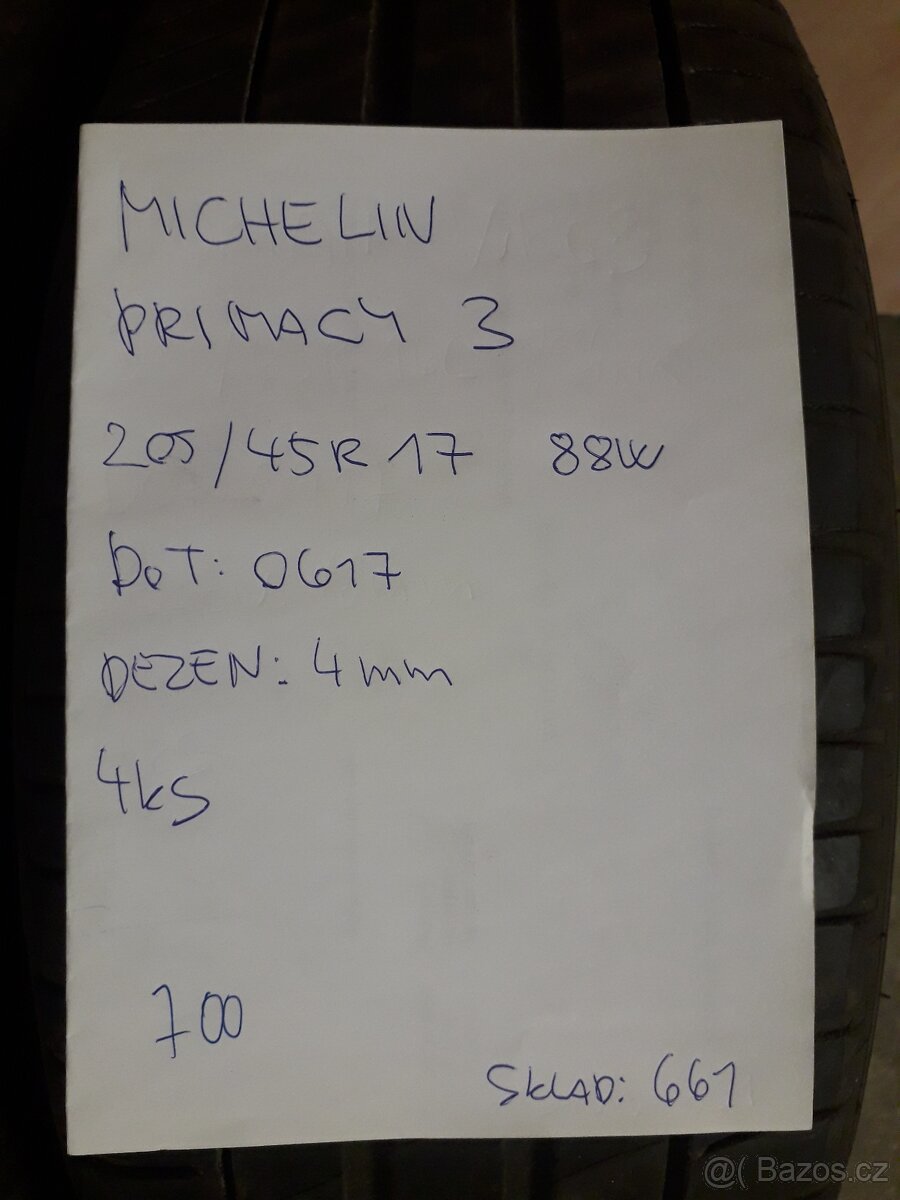 MICHELIN
PRIMACY 3
205/45R17 88W
DOT: 0617
DEZEN: 4mm
4ks
700
SKLAD: 661
@( Bazos.cz